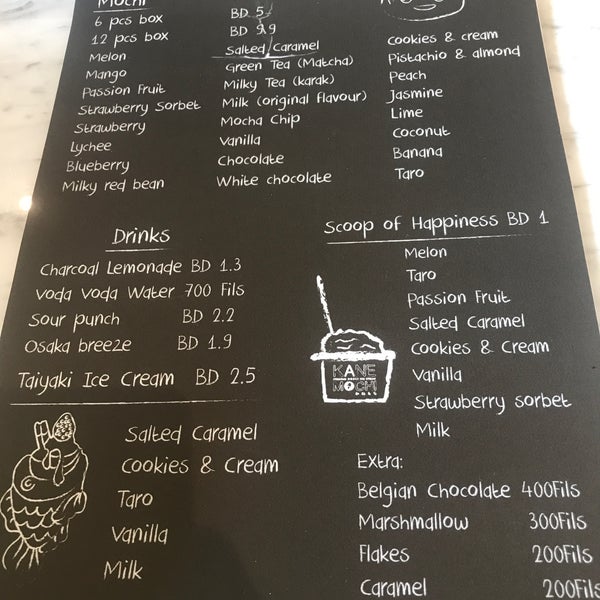 Mochi
6 pcs box BD 5
12 pcs box BD 9.9
Melon
Mango
Passion Fruit
Strawberry Sorbet
Strawberry
Lychee
Blueberry
Milky red bean
Salted Caramel
Green Tea (Matcha)
Milky Tea (karak)
Milk (original flavour)
Mocha Chip
Vanilla
Chocolate
White chocolate
Cookies & cream
Pistachio & almond
Peach
Jasmine
Lime
Coconut
Banana
Taro
Drinks
Charcoal Lemonade BD 1.3
Voda Voda Water 700 Fils
Sour punch BD 2.2
Osaka breeze BD 1.9
Taiyaki Ice Cream BD 2.5
Salted Caramel
Cookies & Cream
Taro
Vanilla
Milk
Scoop of Happiness BD 1
Melon
Taro
Passion Fruit
Salted Caramel
Cookies & Cream
Vanilla
Strawberry sorbet
Milk
KANE
MOCHI
Extra:
Belgian Chocolate 400Fils
Marshmallow 300Fils
Flakes 200Fils
Caramel 200Fils